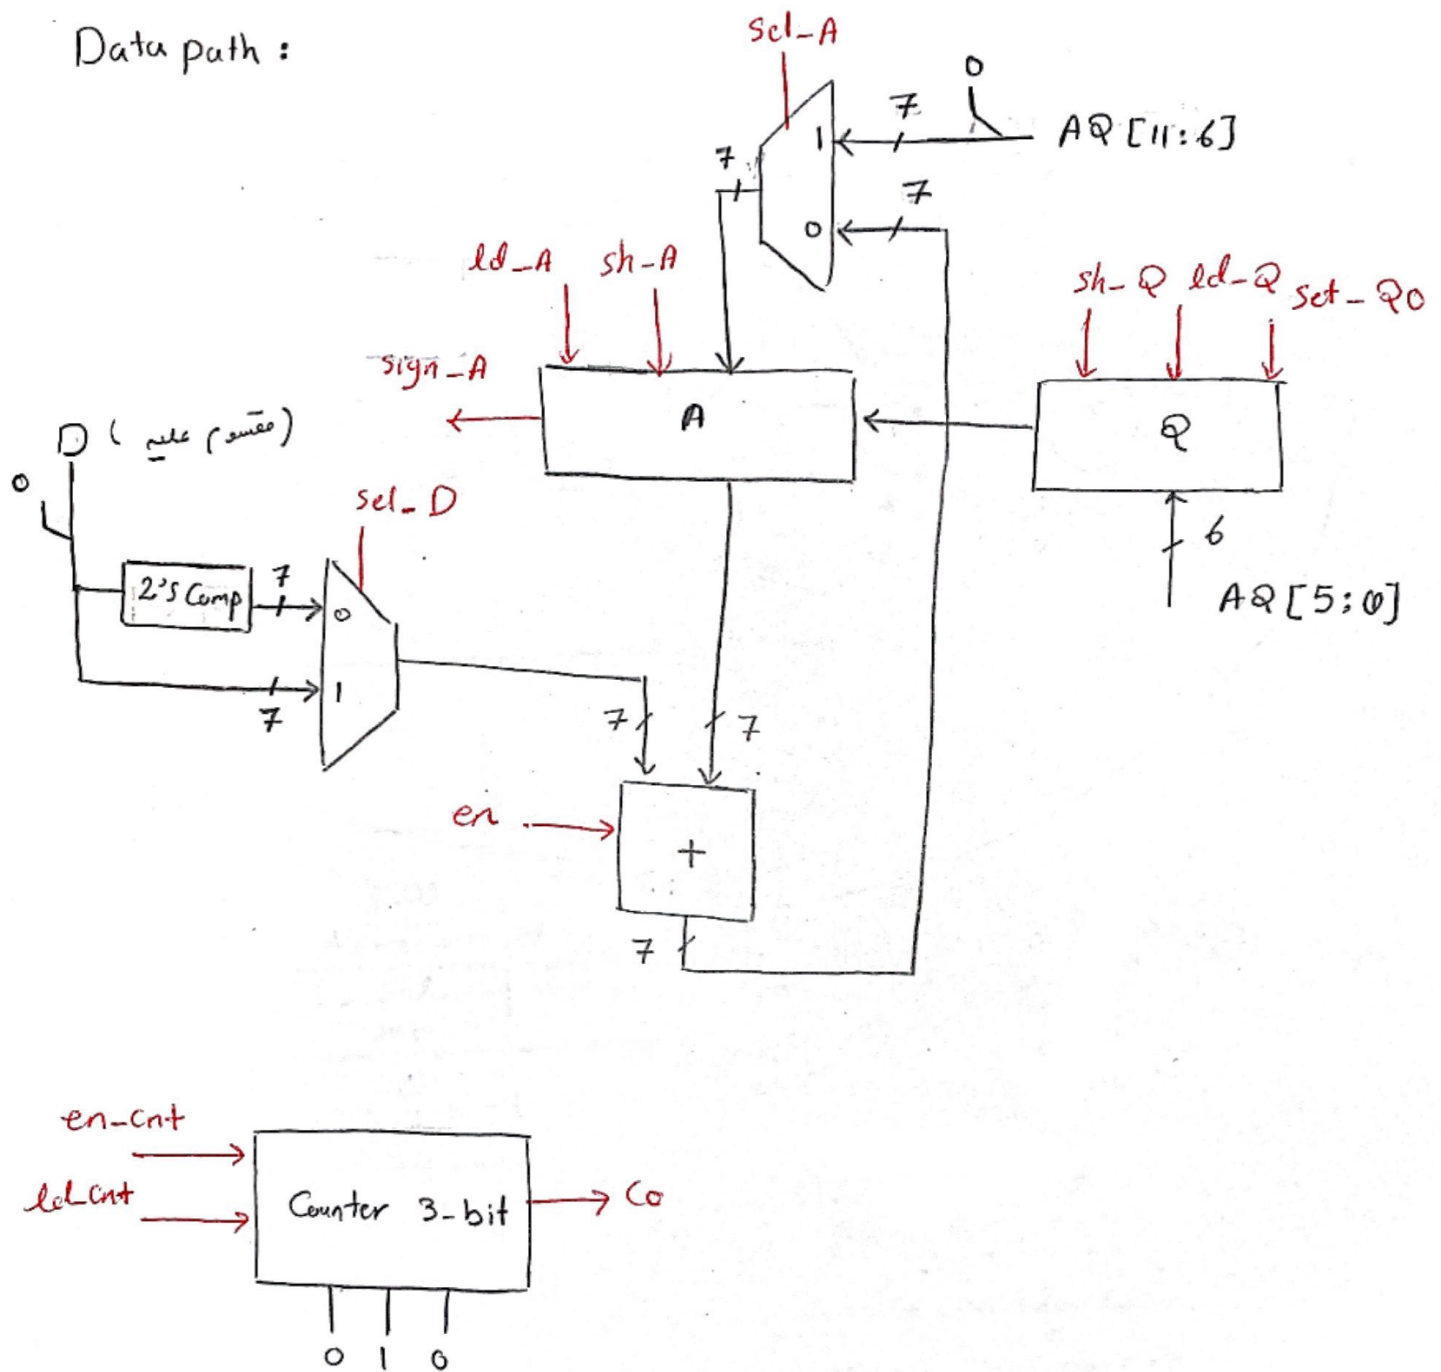 Data path :
sel_A
0
7
AQ [11:6]
1
7
7
0
ld_A
sh_A
sh_Q
ld_Q
set_Q0
sign_A
A
Q
D (مقسوم علیه)
0
sel_D
6
AQ [5:0]
2's Comp
7
0
7
1
7
7
en
+
7
en_cnt
ld_cnt
Counter 3-bit
Co
0 1 0